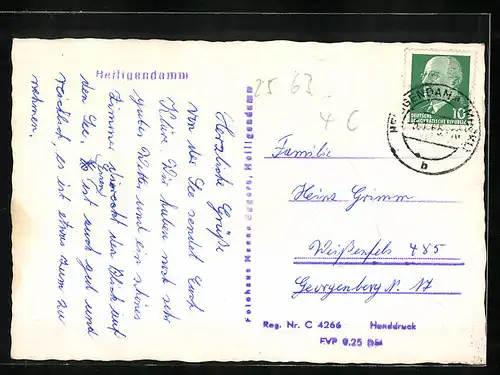 Heiligendamm
25 63
4 C
Herzliche Grüße
von der See sendet Euch
Wir haben noch sehr
gutes Wetter und ein schönes
Zimmer, den Blick auf
den See. Es ist auch gut und
reichlich, es ist etwas zum zu
nehmen.
Fotohaus Menno Eggers, Heiligendamm
10
DEUTSCHE
DEMOKRATISCHE REPUBLIK
b
Familie
Heinz Grimm
Weißenfels 485
Georgenberg N. 17
Reg. Nr. C 4266 Handdruck
EVP 0.25 DM